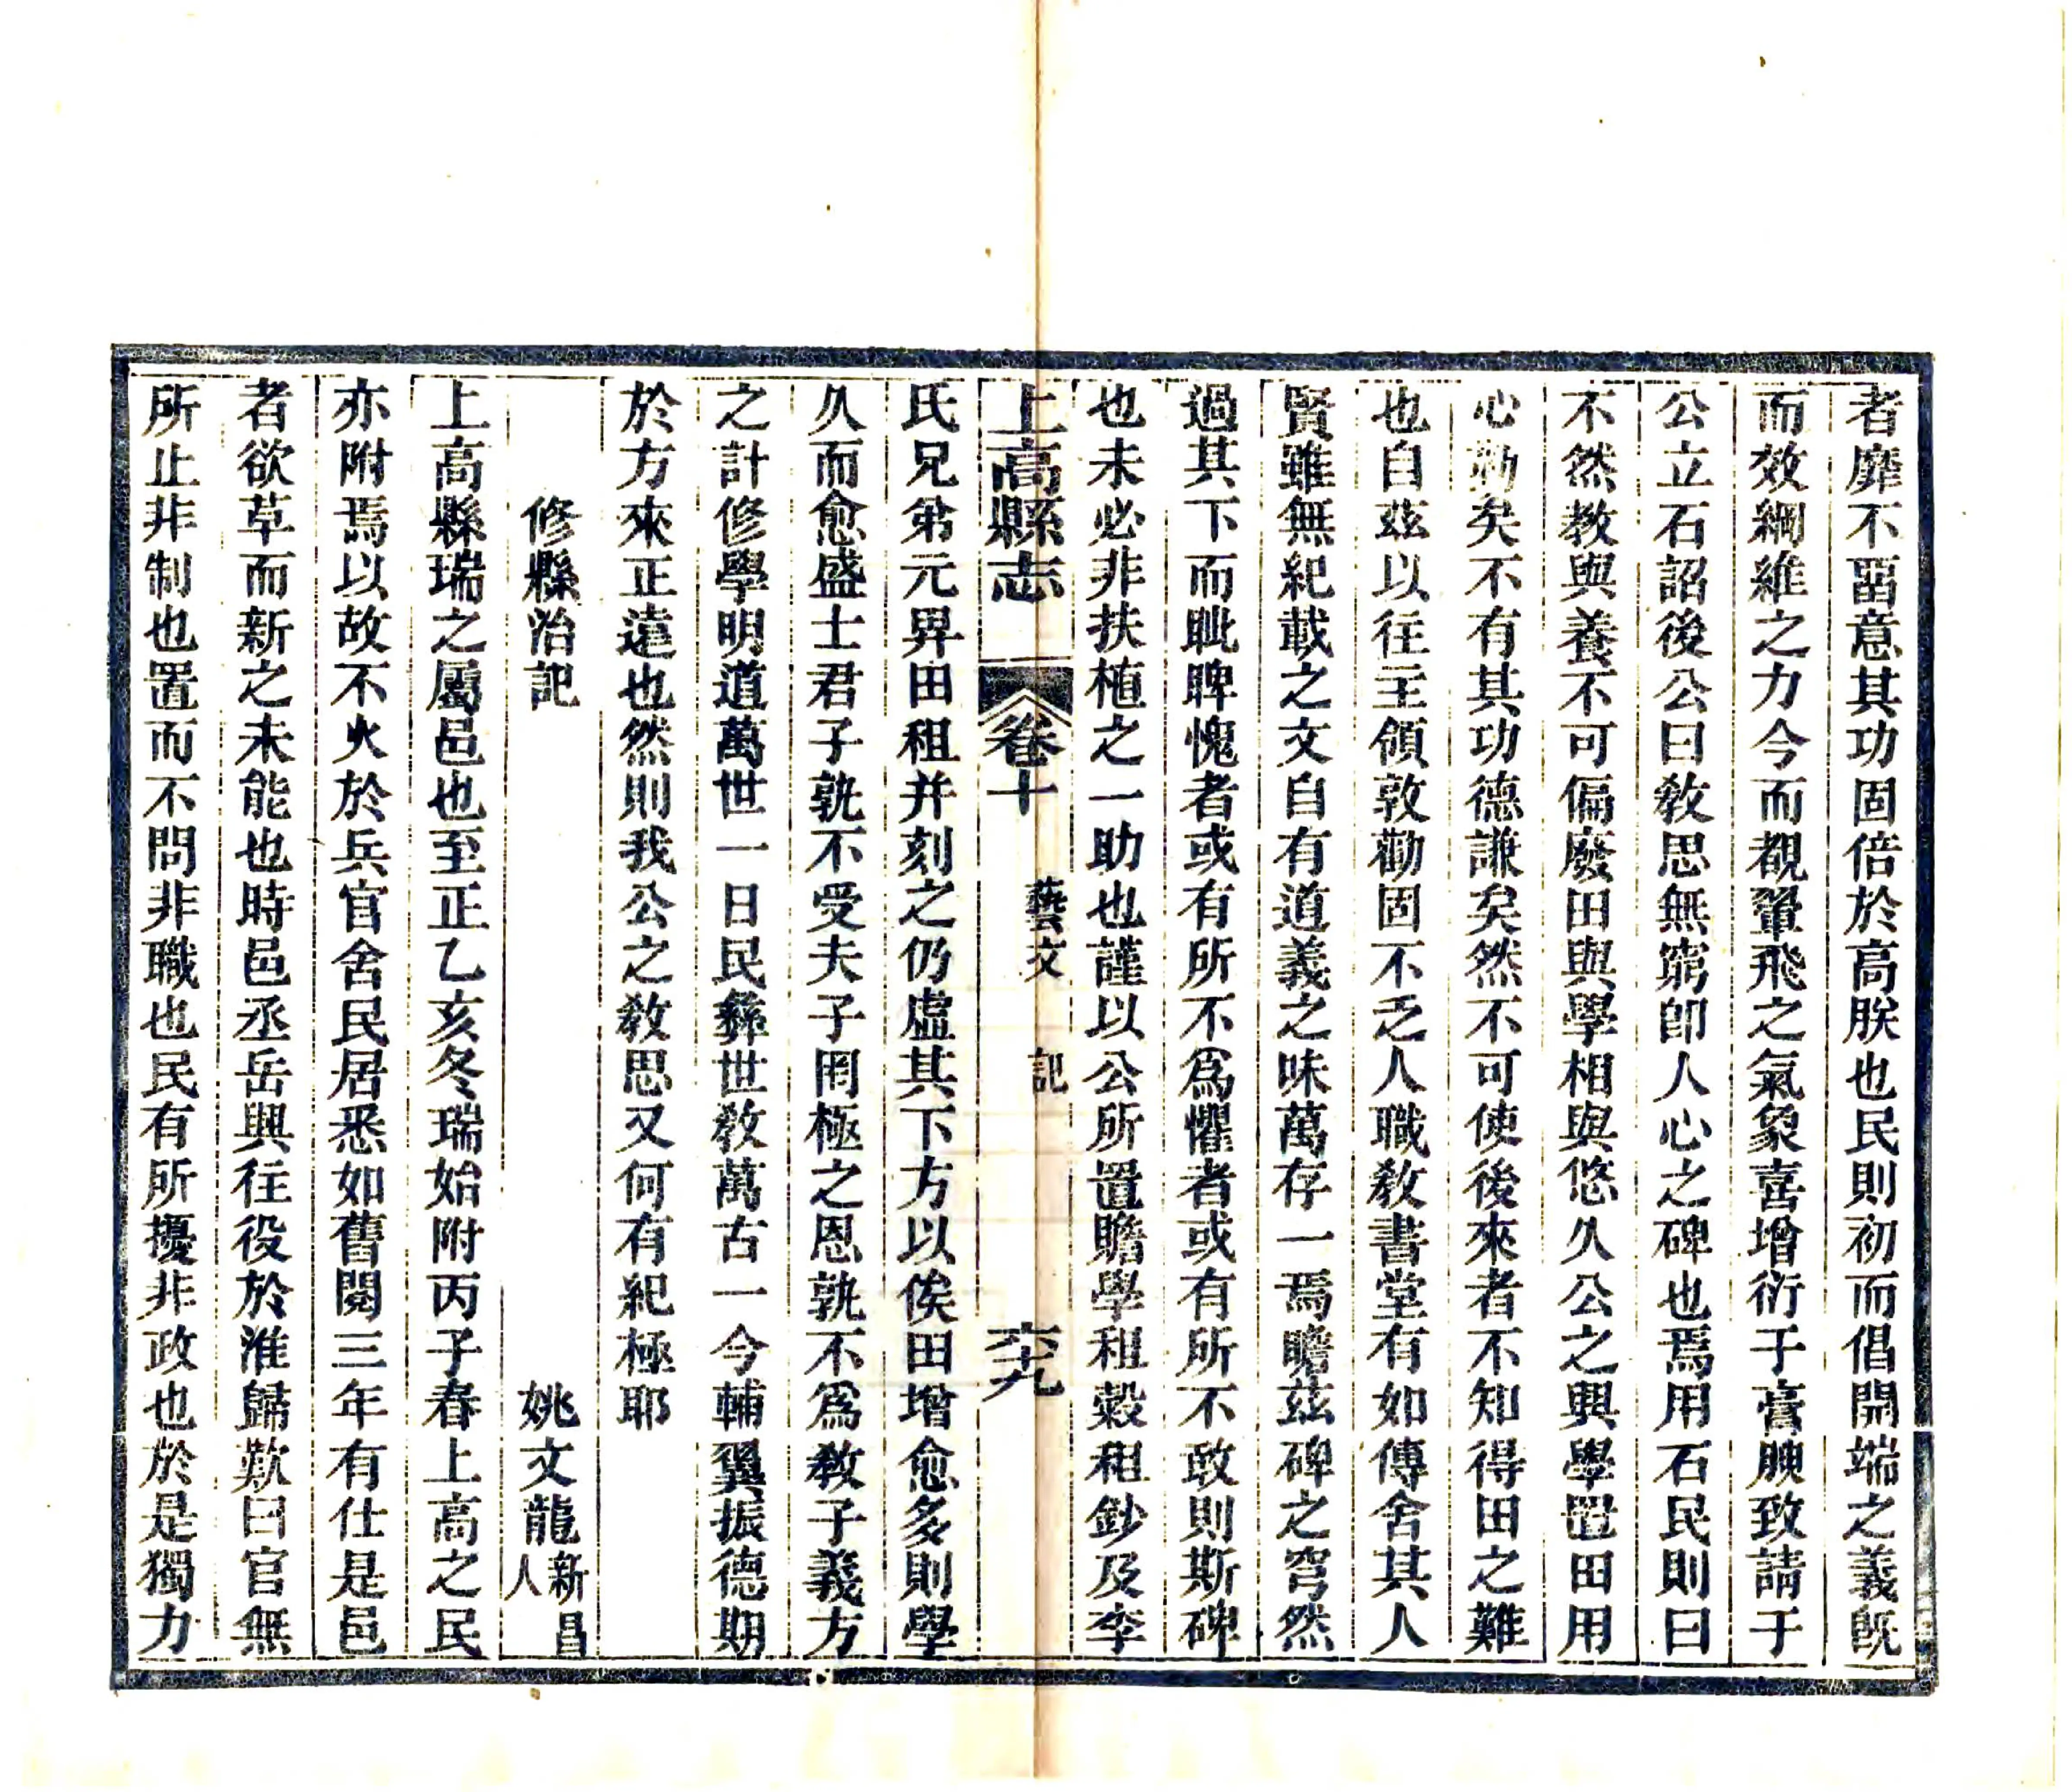 者靡不畱意其功固倍於高朕也民則初而倡開端之義旣
而效綱維之力今而覩翬飛之氣象喜增衍于膏腴致請于
公立石詔後公曰敎思無窮卽人心之碑也焉用石民則曰
不然教與養不可偏廢田與學相與悠久公之興學置田用
心勤矣不有其功德謙矣然不可使後來者不知得田之難
也自茲以往主領敦勸固不乏人職敎書堂有如傳舍其人
賢雖無紀載之文自有道義之味萬存一焉瞻茲碑之穹然
過其下而眦睥愧者或有所不爲懼者或有所不敢則斯碑
也未必非扶植之一助也謹以公所置贍學租穀租鈔及李
上高縣志 卷十 藝文 記 六十九
氏兄弟元畀田租并刻之仍虛其下方以俟田增愈多則學
久而愈盛士君子孰不受夫子罔極之恩孰不爲敎子義方
之計修學明道萬世一日民彝世敎萬古一今輔翼振德期
於方來正遠也然則我公之敎思又何有紀極耶
修縣治記 姚文龍新昌人
上高縣瑞之屬邑也至正乙亥冬瑞始附丙子春上高之民
亦附焉以故不火於兵官舍民居悉如舊閱三年有仕是邑
者欲草而新之未能也時邑丞岳興往役於淮歸歎曰官無
所止非制也置而不問非職也民有所擾非政也於是獨力